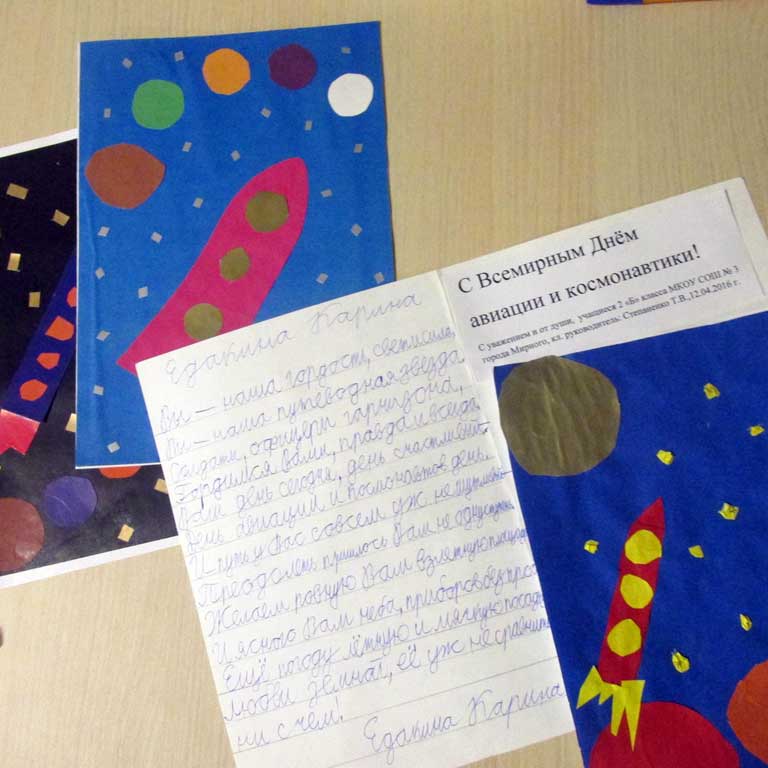 С Всемирным Днём
авиации и космонавтики!
С уважением и от души, учащиеся 2 «Б» класса МКОУ СОШ № 3
города Мирного, кл. руководитель: Степаненко Т.В.,12.04.2016 г.
Едакина Карина
Вы — наша гордость, свет и сила,
Вы — наша путеводная звезда
Солдаты, офицеры гарнизона,
Гордимся Вами, правда и всегда
Вам день сегодня, день счастливый
День авиации и космонавтов день.
И путь у Вас совсем уж не
Преодолеть пришлось Вам не одну
Желаем ровную Вам взлётную
И ясного Вам неба, приборов без
Ещё погоду лётную и мягкую
Любви земной, её уж не сравнить
ни с чем!
Едакина Карина